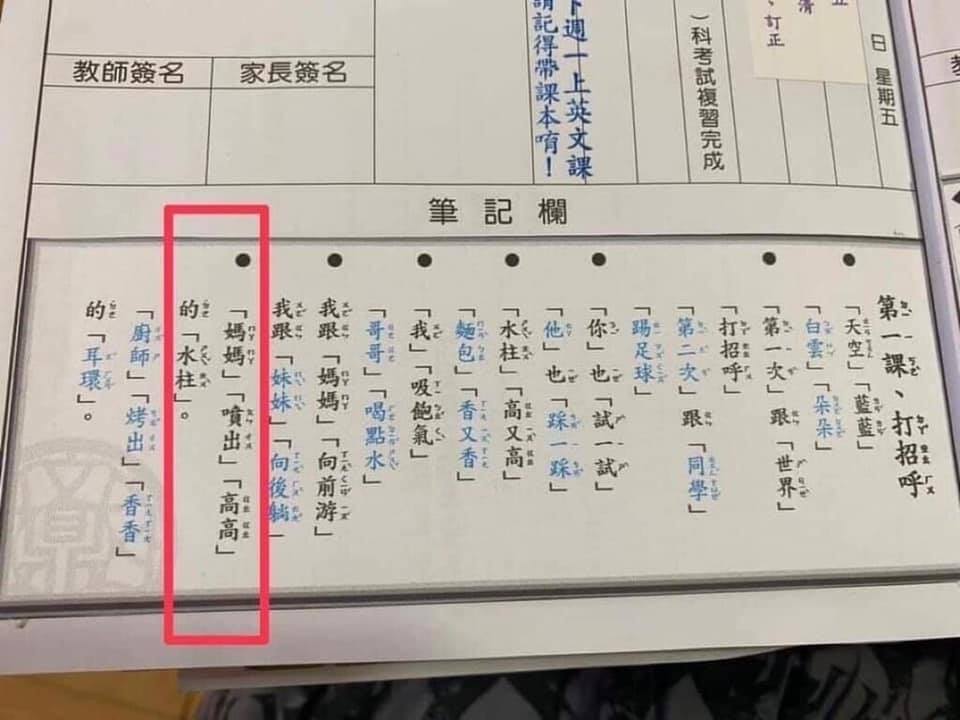 日 星期五
清
、訂正
）科考試複習完成
下週一上英文課
請記得帶課本唷！
家長簽名
教師簽名
筆記欄
第一課、打招呼
●「天空」「藍藍」
「白雲」「朵朵」
●「第一次」跟「世界」
「打招呼」
「第二次」跟「同學」
「踢足球」
●「你」也「試一試」
「他」也「踩一踩」
●「水柱」「高又高」
「麵包」「香又香」
●「我」「吸飽氣」
「哥哥」「喝點水」
●我跟「媽媽」「向前游」
我跟「妹妹」「向後躺」
●「媽媽」「噴出」「高高」
的「水柱」。
「廚師」「烤出」「香香」
的「耳環」。